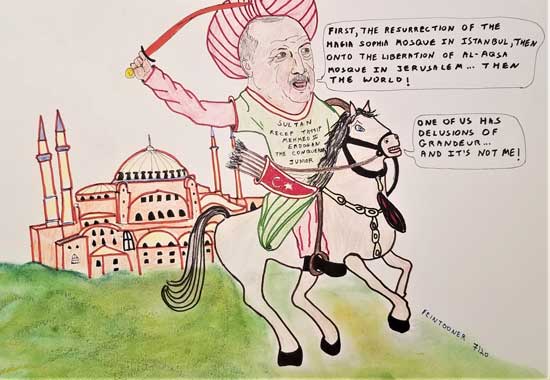 FIRST, THE RESURRECTION OF THE
HAGIA SOPHIA MOSQUE IN ISTANBUL, THEN
ONTO THE LIBERATION OF AL-AQSA
MOSQUE IN JERUSALEM... THEN
THE WORLD!
ONE OF US HAS
DELUSIONS OF
GRANDEUR...
AND IT'S NOT ME!
SULTAN
RECEP TAYYIP
MEHMED II
ERDOGAN
THE CONQUEROR
JUNIOR
FEINTOONER 7/20